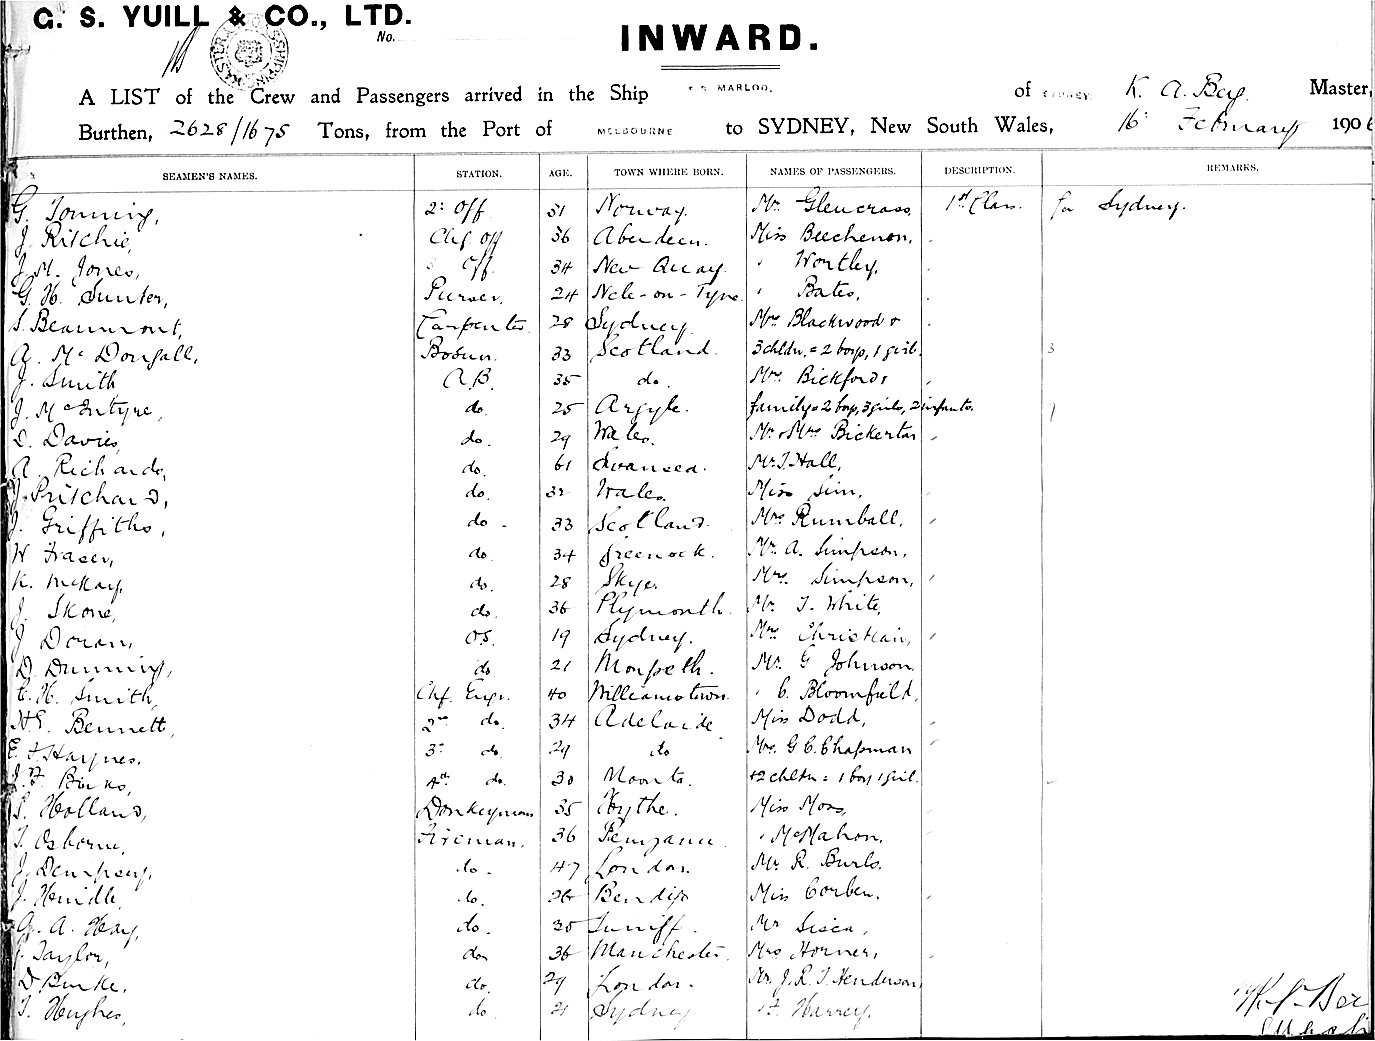 G. S. YUILL & CO., LTD.
No.
INWARD.
A LIST of the Crew and Passengers arrived in the Ship S.S. MARLOO. of SYDNEY K. A. Berg. Master,
Burthen, 2628/1675 Tons, from the Port of MELBOURNE to SYDNEY, New South Wales, 16 February 1906
SEAMEN'S NAMES. STATION. AGE. TOWN WHERE BORN. NAMES OF PASSENGERS. DESCRIPTION. REMARKS.
G. Tonning, 2: Off 51 Norway. Mr. Glencross, 1st Class. for Sydney.
J. Ritchie, Chf Off 36 Aberdeen. Miss Beechenon,
J. M. Jones, Off 34 New Quay. " Wortley,
G. H. Sunter, Purser. 24 Ncle-on-Tyne. " Bates,
S. Beaumont, Carpenter 28 Sydney. Mrs Blackwood &
A. Mc Dougall, Bosun. 33 Scotland. 3 chldn. = 2 boys, 1 girl. 3
J. Smith A.B. 35 do. Mrs. Bickford &
J. McEntyre, do. 25 Argyle. family = 2 boys, 3 girls, 2 infants. 7
D. Davies, do. 29 Wales. Mr. & Mrs Bickerton
A. Richards, do. 61 Swansea. Mr. J. Hall,
J. Pritchard, do. 32 Wales. Miss Sim,
J. Griffiths, do. 33 Scotland. Mrs Rumball,
W Fraser, do. 34 Greenock. Mr. A. Simpson,
K. McKay, do. 28 Skye. Mrs. Simpson,
J. Skone, do. 36 Plymouth. Mr. T. White,
J Doran, O.S. 19 Sydney. Mrs Christian,
D. Dunning, do 21 Morpeth. Mr. G Johnson,
C. H. Smith, Chf. Engr. 40 Williamstown. " C. Bloomfield,
H. E. Bennett, 2nd do. 34 Adelaide. Miss Dodd,
E. F. Haynes. 3: do. 29 do Mrs. G C. Chapman
J. F. Binks, 4th do. 30 Moonta. +2 chldn = 1 boy 1 girl.
S. Holland, Donkeyman 35 Hythe. Miss Moss,
T. Osborne, Fireman. 36 Penzance. " McMahon.
J. Dempsey, do. 47 London. Mr. R. Burls.
J. Hindle, do. 26 Bendigo Miss Corben.
A. Hay, do. 35 Mr Sisca,
J. Taylor, do 36 Manchester. Mrs Horner,
D. Burke, do. 29 London. Mr. J. R. T. Henderson,
T. Hughes, do. 21 Sydney " F. Harvey.